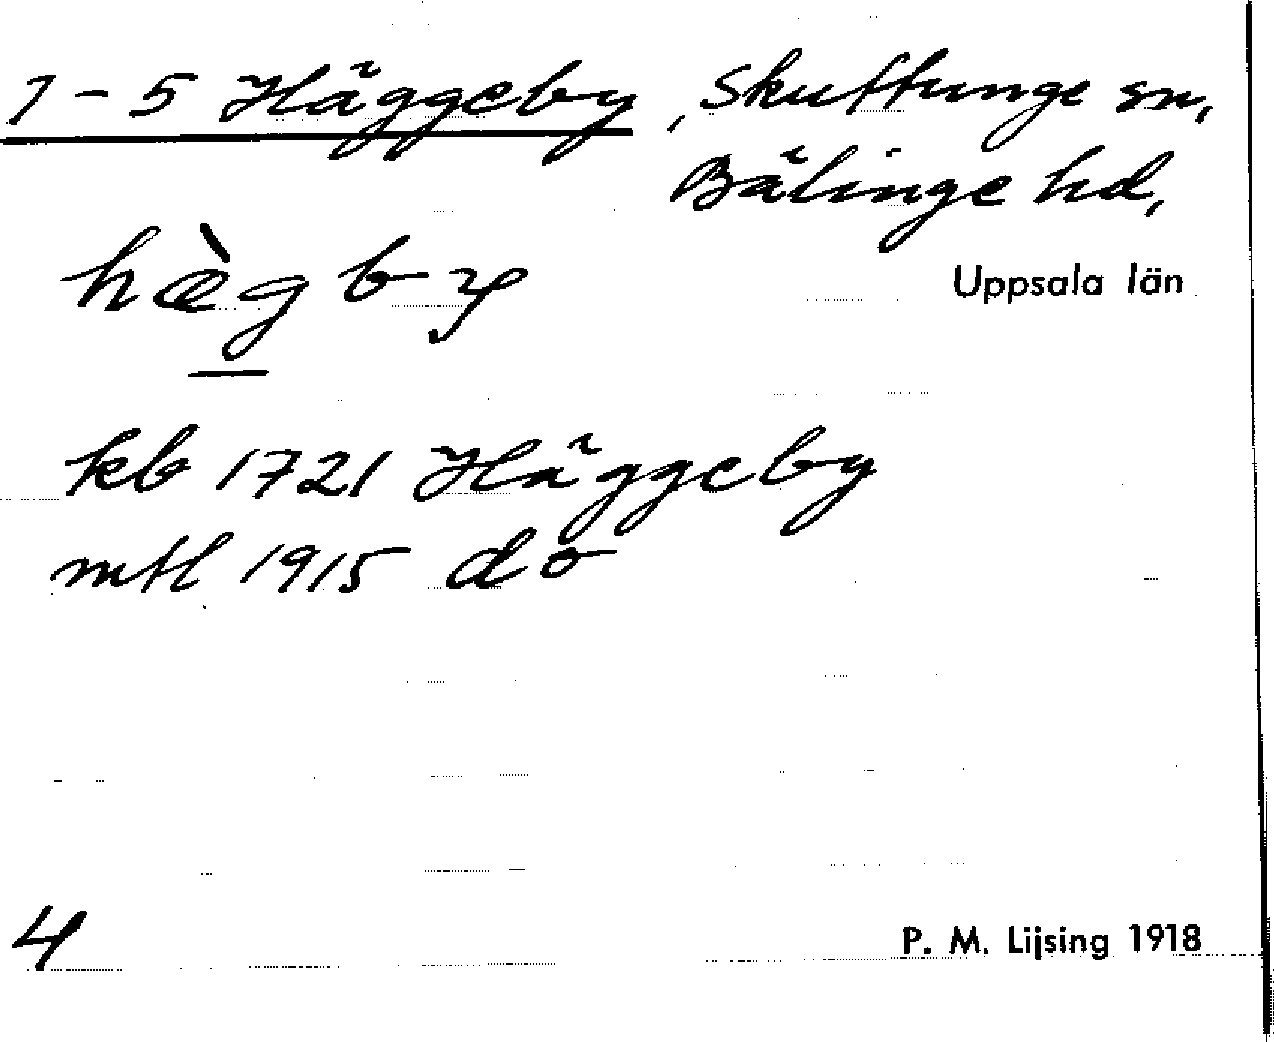 1-5 Häggeby, Skuttunge sn,
Bälinge hd,
hæ̀gby
Uppsala län
kb 1721 Häggeby
mtl 1915 do
4
P. M. Lijsing 1918